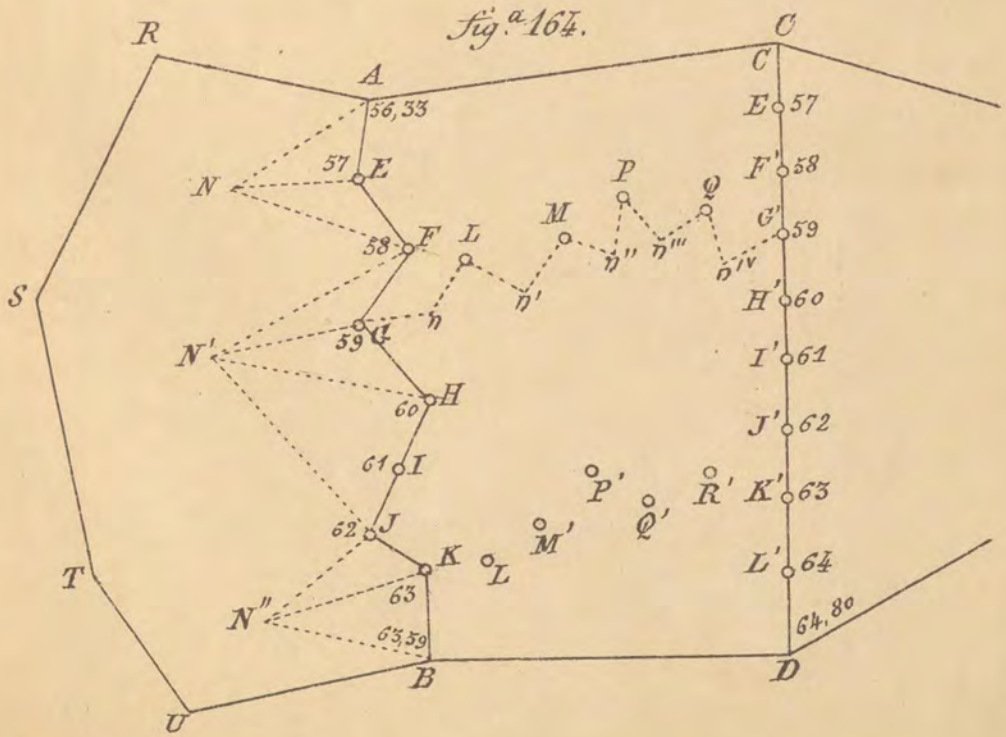 fig.ª 164.
R
A
O
C
56,33
E 57
57 E
N
P
F' 58
Q
M
F
58
L
G' 59
n''
n'''
n^IV
S
n'
H' 60
n
59 G
N'
I' 61
60 H
J' 62
61 I
P'
R'
K' 63
Q'
62 J
M'
K
L
L' 64
T
63
N''
63,59
64,80
B
D
U